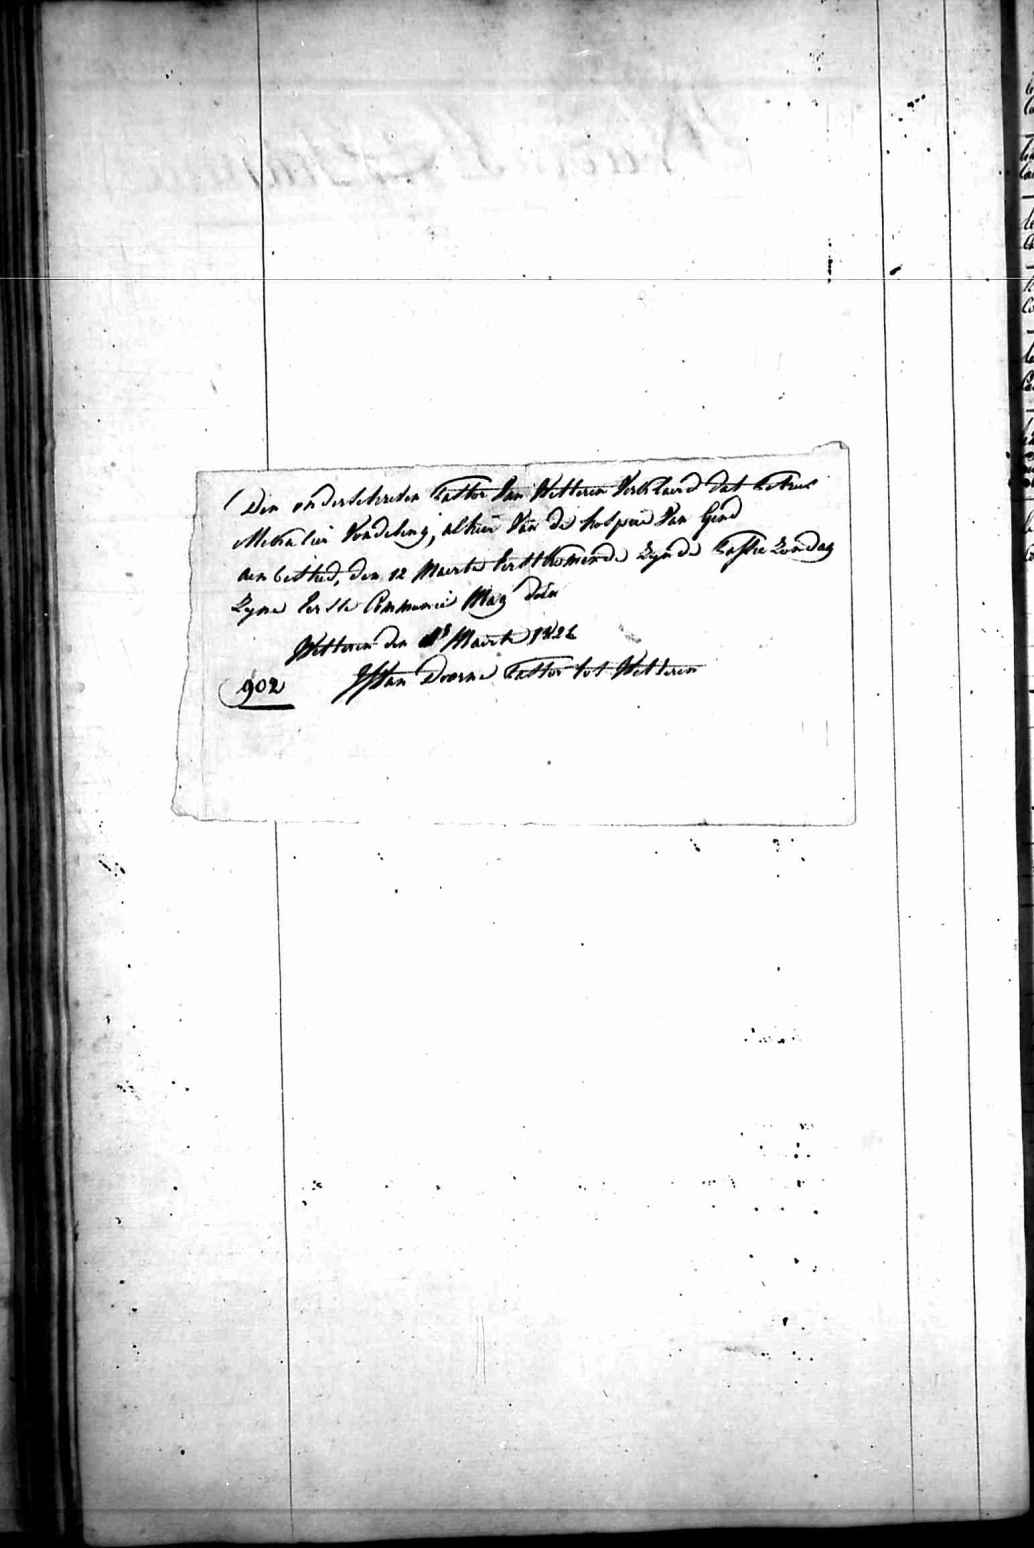 Den onderschreven Pastor Van Wetteren Verklaerd dat Petrus
Vondeling, alhier Van de hospice Van Gend
aen besteed, den 12 Maerte Eerstkomende Zynde Passie Zondag
Zyne Eerste Communie Mag doen
Wetteren den Maerte 1826
902 Van Doorne Pastor tot Wetteren